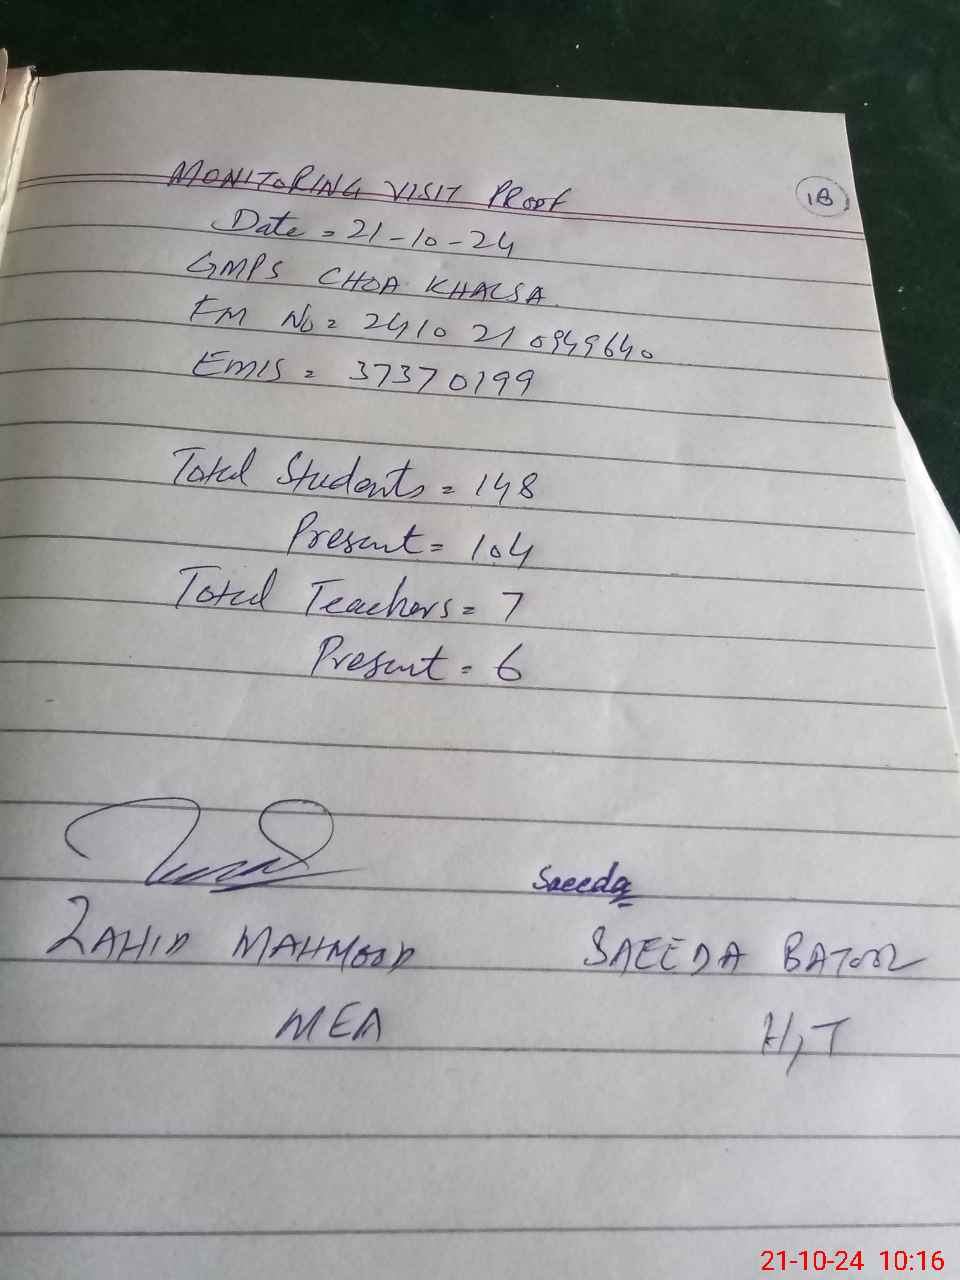 MONITORING VISIT PROOF
18
Date = 21-10-24
GMPS CHOA KHALSA.
EM No = 2410 21 0949640
EMIS = 37370199
Total Students = 148
Present = 104
Total Teachers = 7
Present = 6
Saeeda
ZAHID MAHMOOD
SAEEDA BATOOL
MEA
H,T
21-10-24 10:16